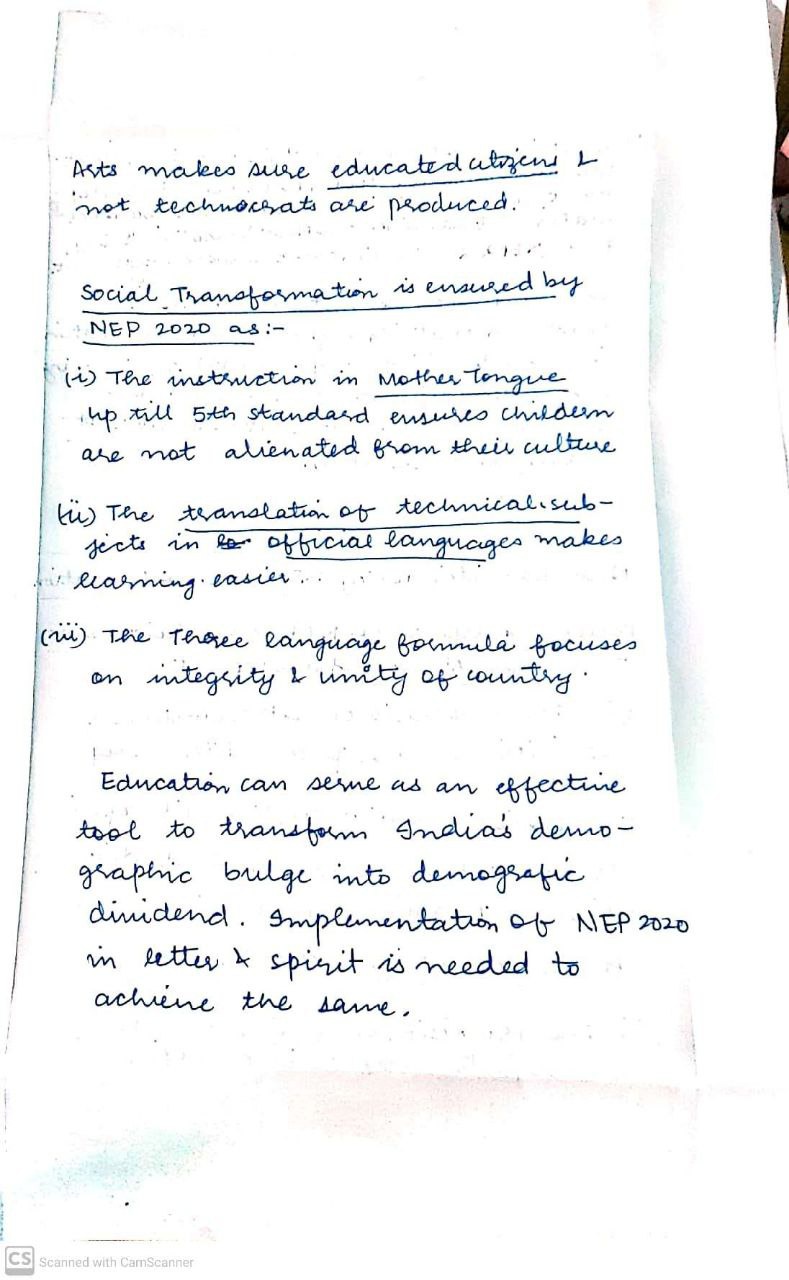 Arts makes sure educated citizens &
not technocrats are produced.
Social Transformation is ensured by
NEP 2020 as:-
(i) The instruction in Mother Tongue
up till 5th standard ensures childern
are not alienated from their culture
(ii) The translation of technical sub-
jects in official languages makes
learning easier.
(iii) The Three language formula focuses
on integrity & unity of country.
Education can serve as an effective
tool to transform India's demo-
graphic bulge into demografic
dividend. Implementation of NEP 2020
in letter & spirit is needed to
achieve the same.
CS Scanned with CamScanner